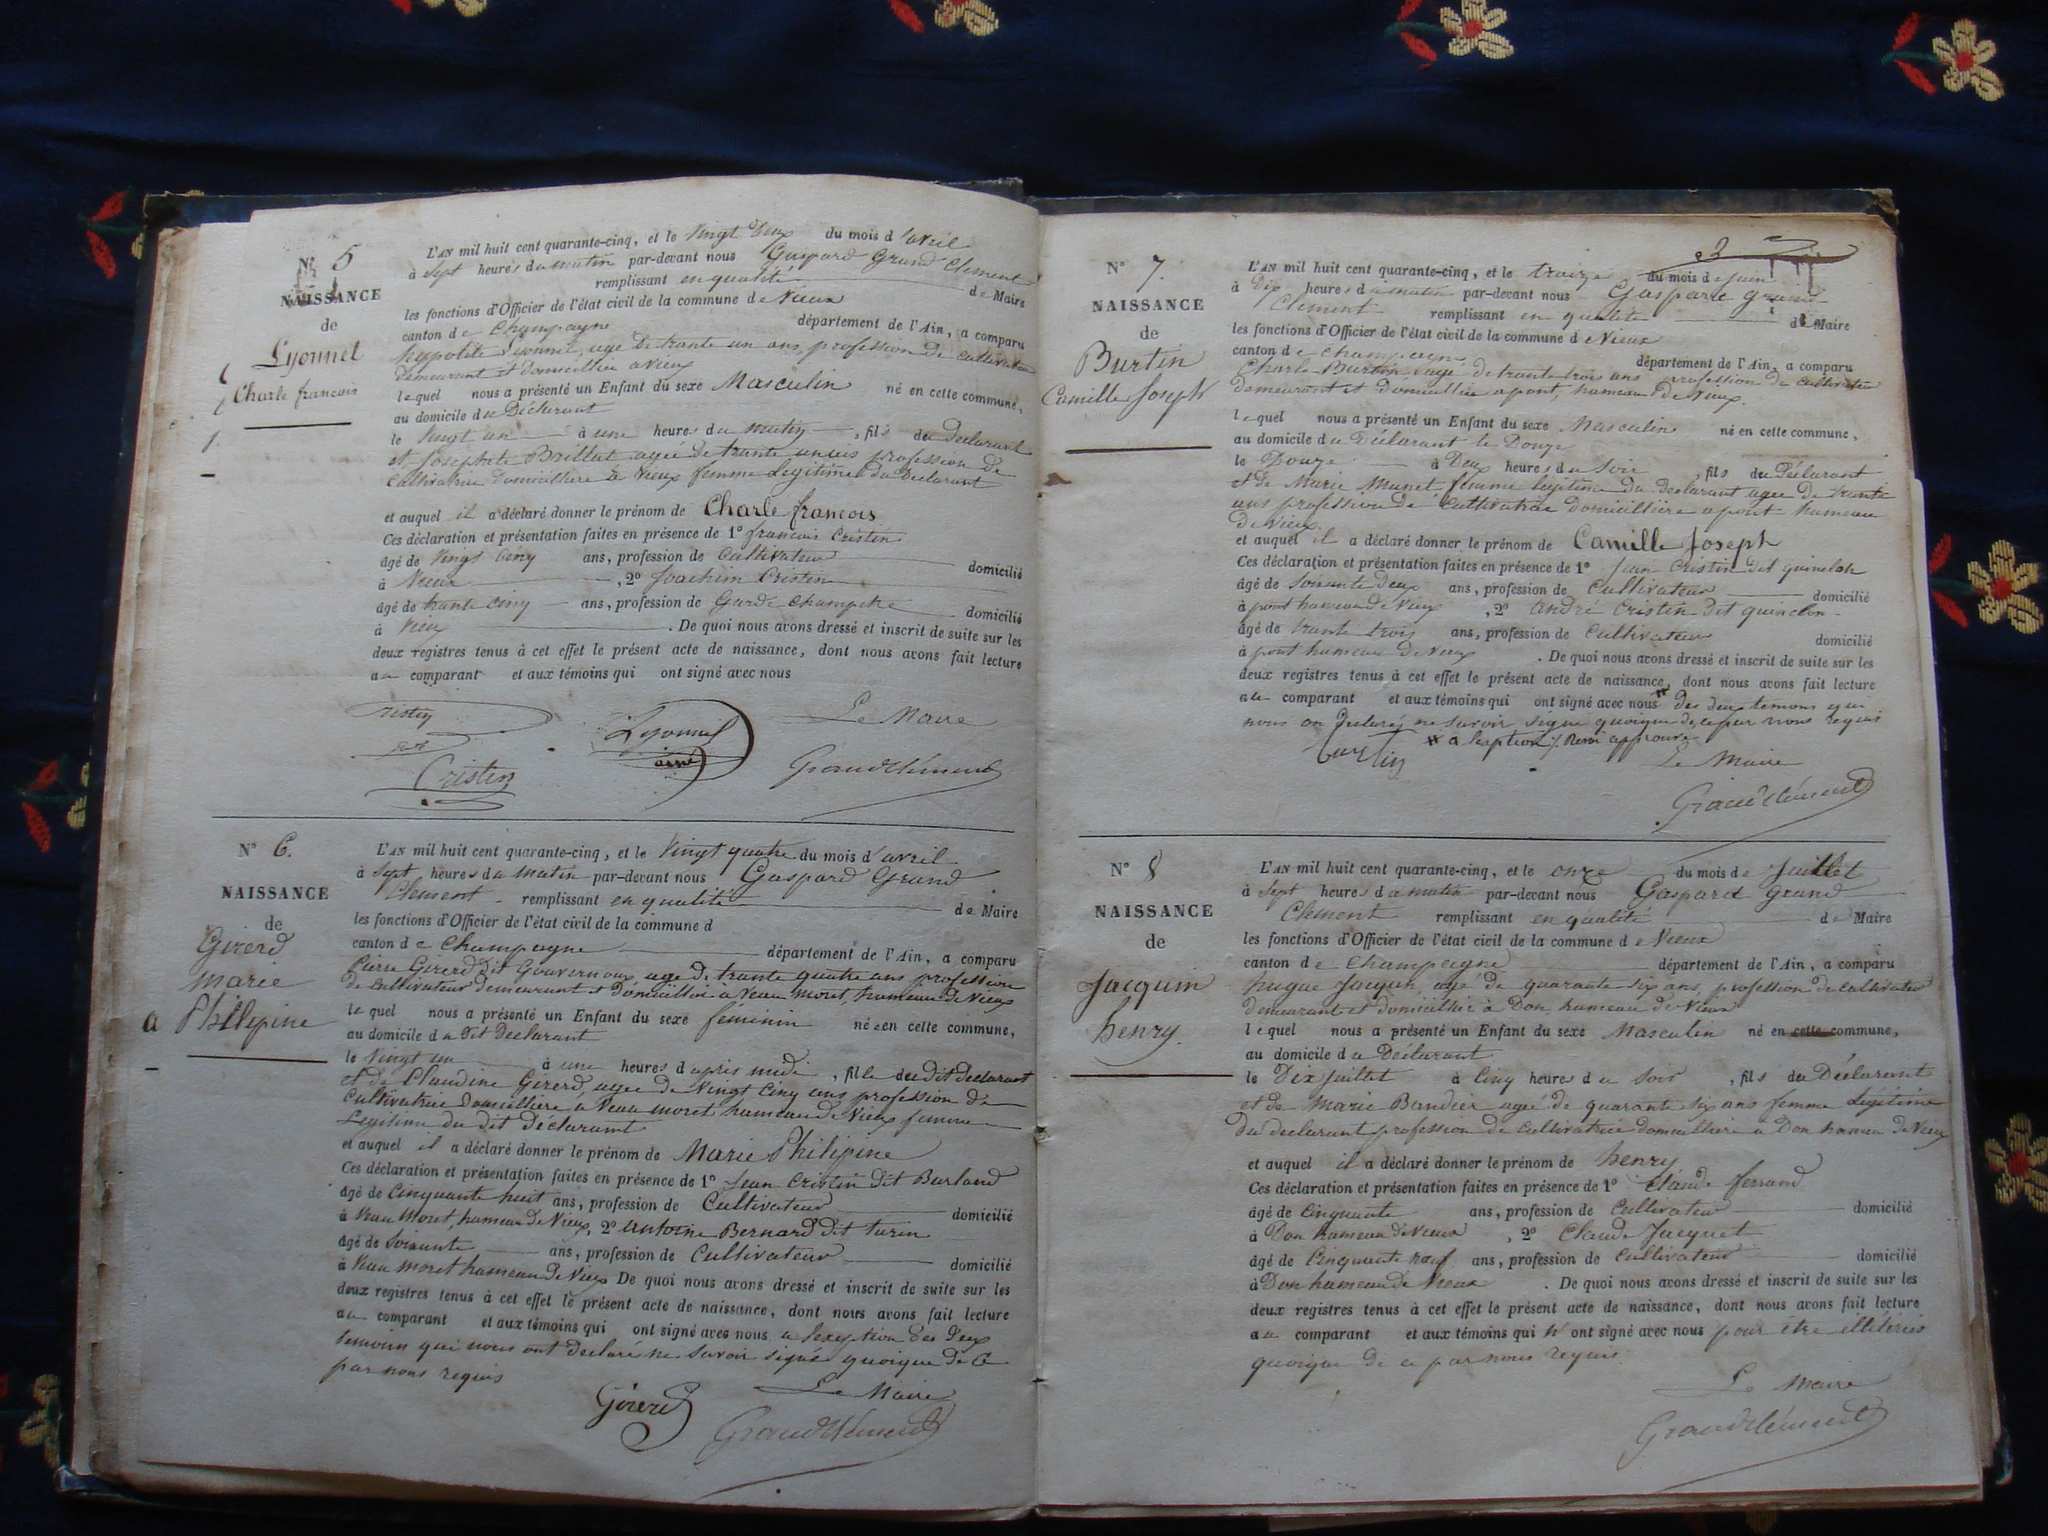 N° 5
NAISSANCE
de
Lyonnet
Charle francois
L'AN mil huit cent quarante-cinq, et le vingt deux du mois d'avril
à sept heures du matin par-devant nous Gaspard Grand Clement
remplissant en qualité de Maire
les fonctions d'Officier de l'état civil de la commune de Vieux
canton de Champagne département de l'Ain, a comparu
hypolite Lyonnet, age de trante un ans profession de cultivateur
demeurant et domicillié a vieux
lequel nous a présenté un Enfant du sexe Masculin né en cette commune,
au domicile du Déclarant
le vingt un à une heures du matin, fils du Declarant
et Josephte Brillat agée de trante un ans profession de
Cultivatrice Domicilliere à Vieux femme Legitime du Declarant
et auquel il a déclaré donner le prénom de Charle francois
Ces déclaration et présentation faites en présence de 1° francois Cristin
âgé de vingt cinq ans, profession de Cultivateur domicilié
à Vieux, 2° Joachim Cristin
âgé de trante cinq ans, profession de Garde Champetre domicilié
à Vieux. De quoi nous avons dressé et inscrit de suite sur les
deux registres tenus à cet effet le présent acte de naissance, dont nous avons fait lecture
au comparant et aux témoins qui ont signé avec nous
Cristin Lyonnet Le Maire
Cristin ainé Grand Clément
N° 6.
NAISSANCE
de
Girerd
Marie
Philipine
a
L'AN mil huit cent quarante-cinq, et le vingt quatre du mois d'avril
à sept heures du matin par-devant nous Gaspard Grand
Clement remplissant en qualité de Maire
les fonctions d'Officier de l'état civil de la commune d
canton de Champagne département de l'Ain, a comparu
Pierre Girerd dit Gouvernoux age de trante quatre ans profession
de Cultivateur demeurant et domicillié à Veau moret, hameau de Vieux
lequel nous a présenté un Enfant du sexe feminin née en cette commune,
au domicile du Dit Declarant
le vingt un à une heures d'apres midi, fille du dit declarant
et de Claudine Girerd, agee de vingt cinq ans profession de
Cultivatrice Domicilliere à Veau moret hameau de Vieux femme
Legitime du dit déclarant
et auquel il a déclaré donner le prénom de Marie Philipine
Ces déclaration et présentation faites en présence de 1° Jean Cristin dit Burland
âgé de Cinquante huit ans, profession de Cultivateur domicilié
à Veau Moret, hameau de Vieux, 2° antoine Bernard dit turin
âgé de soixante ans, profession de Cultivateur domicilié
à Veau moret hameau de Vieux De quoi nous avons dressé et inscrit de suite sur les
deux registres tenus à cet effet le présent acte de naissance, dont nous avons fait lecture
au comparant et aux témoins qui ont signé avec nous a l'exeption des deux
temoins qui nous ont declaré ne savoir signé quoique de ce
par nous requis
Girerd Le Maire
Grand Clément
3
N° 7.
NAISSANCE
de
Burtin
Camille Joseph
L'AN mil huit cent quarante-cinq, et le traize du mois de juin
à Dix heures du matin par-devant nous Gaspard grand
Clement remplissant en qualité de Maire
les fonctions d'Officier de l'état civil de la commune de Vieux
canton de Champagne département de l'Ain, a comparu
Charle Burtin, agé de trante trois ans profession de Cultivateur
demeurant et domicillié a pont, hameau de Vieux.
lequel nous a présenté un Enfant du sexe Masculin né en cette commune,
au domicile du Déclarant le Douze
le Douze à Deux heures du soir, fils du Déclarant
et de Marie Munet femme legitime du declarant agee de trante
ans profession de Cultivatrice domicilliere a pont hameau
de Vieux
et auquel il a déclaré donner le prénom de Camille Joseph
Ces déclaration et présentation faites en présence de 1° Jean Cristin dit
âgé de soixante deux ans, profession de Cultivateur domicilié
à pont hameau de Vieux, 2° andré Cristin dit
âgé de trante trois ans, profession de Cultivateur domicilié
à pont hameau de Vieux. De quoi nous avons dressé et inscrit de suite sur les
deux registres tenus à cet effet le présent acte de naissance, dont nous avons fait lecture
au comparant et aux témoins qui ont signé avec nous des deux temoins qui
nous on declaré ne savoir signé quoique de ce par nous requis
a l'exption Renvi approuvé
Burtin Le Maire
Grand Clément
N° 8
NAISSANCE
de
Jacquin
henry.
L'AN mil huit cent quarante-cinq, et le onze du mois de Juillet
à sept heures du matin par-devant nous Gaspard grand
Clement remplissant en qualité de Maire
les fonctions d'Officier de l'état civil de la commune de Vieux
canton de Champagne département de l'Ain, a comparu
hugue Jacquin, agé de quarante six ans, profession de cultivateur
demeurant et domicillié à Don hameau de Vieux
lequel nous a présenté un Enfant du sexe Masculin né en cette commune,
au domicile du Déclarant
le Dix juillet à Cinq heures du soir, fils du Déclarant
et de Marie Bandier agée de quarante six ans femme Légitime
Du declarant profession de Cultivatrice domicilliere a Don hameau de Vieux
et auquel il a déclaré donner le prénom de henry
Ces déclaration et présentation faites en présence de 1° Claude ferrand
âgé de Cinquante ans, profession de Cultivateur domicilié
à Don hameau de Vieux, 2° Claude Jacquet
âgé de Cinquante neuf ans, profession de Cultivateur domicilié
à Don hameau de Vieux. De quoi nous avons dressé et inscrit de suite sur les
deux registres tenus à cet effet le présent acte de naissance, dont nous avons fait lecture
au comparant et aux témoins qui n'ont signé avec nous pour être
quoique de ce par nous requis
Le Maire
Grand Clément